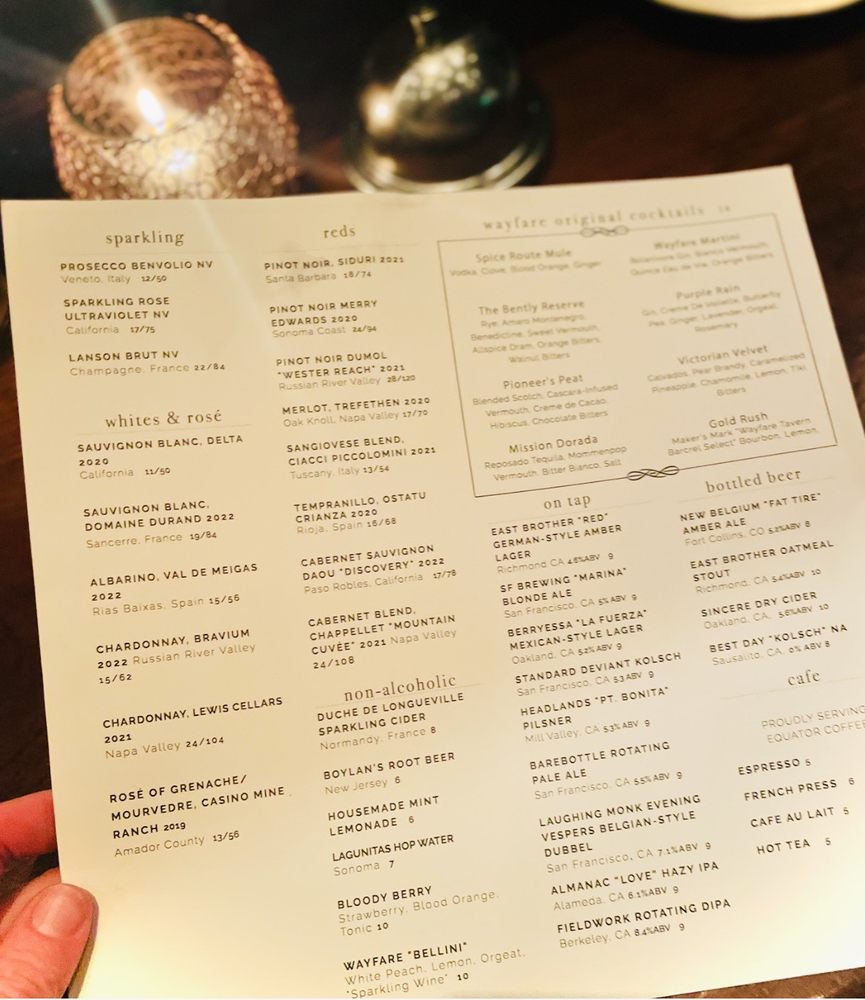 sparkling
PROSECCO BENVOLIO NV
Veneto, Italy 12/50
SPARKLING ROSE
ULTRAVIOLET NV
California 17/75
LANSON BRUT NV
Champagne, France 22/84
whites & rosé
SAUVIGNON BLANC, DELTA
2020
California 11/50
SAUVIGNON BLANC,
DOMAINE DURAND 2022
Sancerre, France 19/84
ALBARINO, VAL DE MEIGAS
2022
Rias Baixas, Spain 15/56
CHARDONNAY, BRAVIUM
2022 Russian River Valley
15/62
CHARDONNAY, LEWIS CELLARS
2021
Napa Valley 24/104
ROSÉ OF GRENACHE/
MOURVEDRE, CASINO MINE
RANCH 2019
Amador County 13/56
reds
PINOT NOIR, SIDURI 2021
Santa Barbara 18/74
PINOT NOIR MERRY
EDWARDS 2020
Sonoma Coast 24/94
PINOT NOIR DUMOL
"WESTER REACH" 2021
Russian River Valley 28/120
MERLOT, TREFETHEN 2020
Oak Knoll, Napa Valley 17/70
SANGIOVESE BLEND,
CIACCI PICCOLOMINI 2021
Tuscany, Italy 13/54
TEMPRANILLO, OSTATU
CRIANZA 2020
Rioja, Spain 16/68
CABERNET SAUVIGNON
DAOU "DISCOVERY" 2022
Paso Robles, California 17/76
CABERNET BLEND,
CHAPPELLET "MOUNTAIN
CUVÉE" 2021 Napa Valley
24/108
non-alcoholic
DUCHE DE LONGUEVILLE
SPARKLING CIDER
Normandy, France 8
BOYLAN'S ROOT BEER
New Jersey 6
HOUSEMADE MINT
LEMONADE 6
LAGUNITAS HOP WATER
Sonoma 7
BLOODY BERRY
Strawberry, Blood Orange,
Tonic 10
WAYFARE "BELLINI"
White Peach, Lemon, Orgeat,
"Sparkling Wine" 10
wayfare original cocktails
Spice Route Mule
Vodka, Clove, Blood Orange, Ginger
The Bently Reserve
Rye, Amaro Montenegro,
Benedictine, Sweet Vermouth,
Allspice Dram, Orange Bitters,
Walnut Bitters
Pioneer's Peat
Blended Scotch, Cascara-Infused
Vermouth, Creme de Cacao,
Hibiscus, Chocolate Bitters
Mission Dorada
Reposado Tequila, Mommenpop
Vermouth, Bitter Bianco, Salt
Wayfare Martini
Botanivore Gin, Bianco Vermouth,
Quince Eau de Vie, Orange Bitters
Purple Rain
Gin, Creme De Violette, Butterfly
Pea, Ginger, Lavender, Orgeat,
Rosemary
Victorian Velvet
Calvados, Pear Brandy, Caramelized
Pineapple, Chamomile, Lemon, Tiki
Bitters
Gold Rush
Maker's Mark "Wayfare Tavern
Barrel Select" Bourbon, Lemon,
on tap
EAST BROTHER "RED"
GERMAN-STYLE AMBER
LAGER
Richmond CA 4.6%ABV 9
SF BREWING "MARINA"
BLONDE ALE
San Francisco, CA 5% ABV 9
BERRYESSA "LA FUERZA"
MEXICAN-STYLE LAGER
Oakland, CA 5.2%ABV 9
STANDARD DEVIANT KOLSCH
San Francisco, CA 5.3 ABV 9
HEADLANDS "PT. BONITA"
PILSNER
Mill Valley, CA 5.3% ABV 9
BAREBOTTLE ROTATING
PALE ALE
San Francisco, CA 5.5%ABV 9
LAUGHING MONK EVENING
VESPERS BELGIAN-STYLE
DUBBEL
San Francisco, CA 7.1%ABV 9
ALMANAC "LOVE" HAZY IPA
Alameda, CA 6.1%ABV 9
FIELDWORK ROTATING DIPA
Berkeley, CA 8.4%ABV 9
bottled beer
NEW BELGIUM "FAT TIRE"
AMBER ALE
Fort Collins, CO 5.2%ABV 8
EAST BROTHER OATMEAL
STOUT
Richmond, CA 5.4%ABV 10
SINCERE DRY CIDER
Oakland, CA, 5.6%ABV 10
BEST DAY "KOLSCH" NA
Sausalito, CA, 0% ABV 8
cafe
PROUDLY SERVING
EQUATOR COFFEE
ESPRESSO 5
FRENCH PRESS 6
CAFE AU LAIT 5
HOT TEA 5